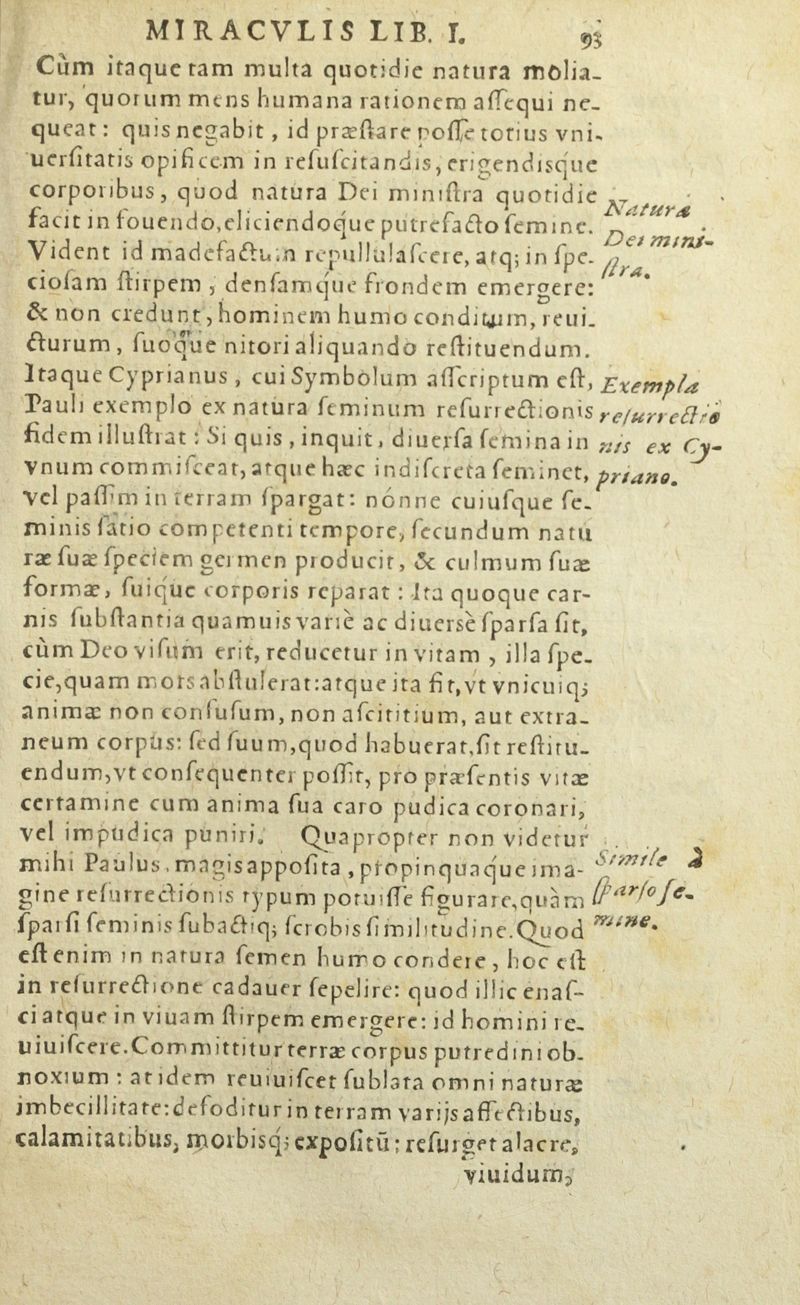 MIRACVLIS LIB. I. 93
Cùm itaque tam multa quotidie natura molia-
tur, quorum mens humana rationem aſſequi ne-
queat: quis negabit, id præſtare poſſe totius vni-
uerſitatis opificem in reſuſcitandis, erigendisque
corporibus, quod natura Dei miniſtra quotidie
facit in fouendo, eliciendoque putrefacto ſemine.
Natura
Dei mini-
ſtra.
Vident id madefactum repullulaſcere, atq; in ſpe-
cioſam ſtirpem, denſamque frondem emergere:
& non credunt, hominem humo conditum, reui-
cturum, ſuoque nitori aliquando reſtituendum.
Itaque Cyprianus, cui Symbolum aſſcriptum eſt,
Pauli exemplo ex natura ſeminum reſurrectionis
fidem illuſtrat: Si quis, inquit, diuerſa ſemina in
vnum commiſceat, atque hæc indiſcreta ſeminet,
Exempla
reſurrectiõ
nis ex Cy-
priano.
vel paſſim in terram ſpargat: nónne cuiuſque ſe-
minis ſatio competenti tempore, ſecundum natu
ræ ſuæ ſpeciem germen producit, & culmum ſuæ
formæ, ſuique corporis reparat: Ita quoque car-
nis ſubſtantia quamuis variè ac diuersè ſparſa ſit,
cùm Deo viſum erit, reducetur in vitam, illa ſpe-
cie, quam mors abſtulerat: atque ita fit, vt vnicuiq;
animæ non confuſum, non aſcititium, aut extra-
neum corpus: ſed ſuum, quod habuerat, ſit reſtitu-
endum, vt conſequenter poſſit, pro præſentis vitæ
certamine cum anima ſua caro pudica coronari,
vel impudica puniri. Quapropter non videtur
mihi Paulus, magis appoſita, propinquaque ima-
gine reſurrectionis typum potuiſſe figurare, quàm
ſparſi ſeminis ſubactiq; ſcrobis ſimilitudine. Quod
Simile à
ſparſo ſe-
mine.
eſt enim in natura ſemen humo condere, hoc eſt
in reſurrectione cadauer ſepelire: quod illic enaſ-
ci atque in viuam ſtirpem emergere: id homini re-
uiuiſcere. Committitur terræ corpus putredini ob-
noxium: at idem reuiuiſcet ſublata omni naturæ
imbecillitate: defoditur in terram varijs affectibus,
calamitatibus, morbisq; expoſitũ: reſurget alacre,
viuidum,